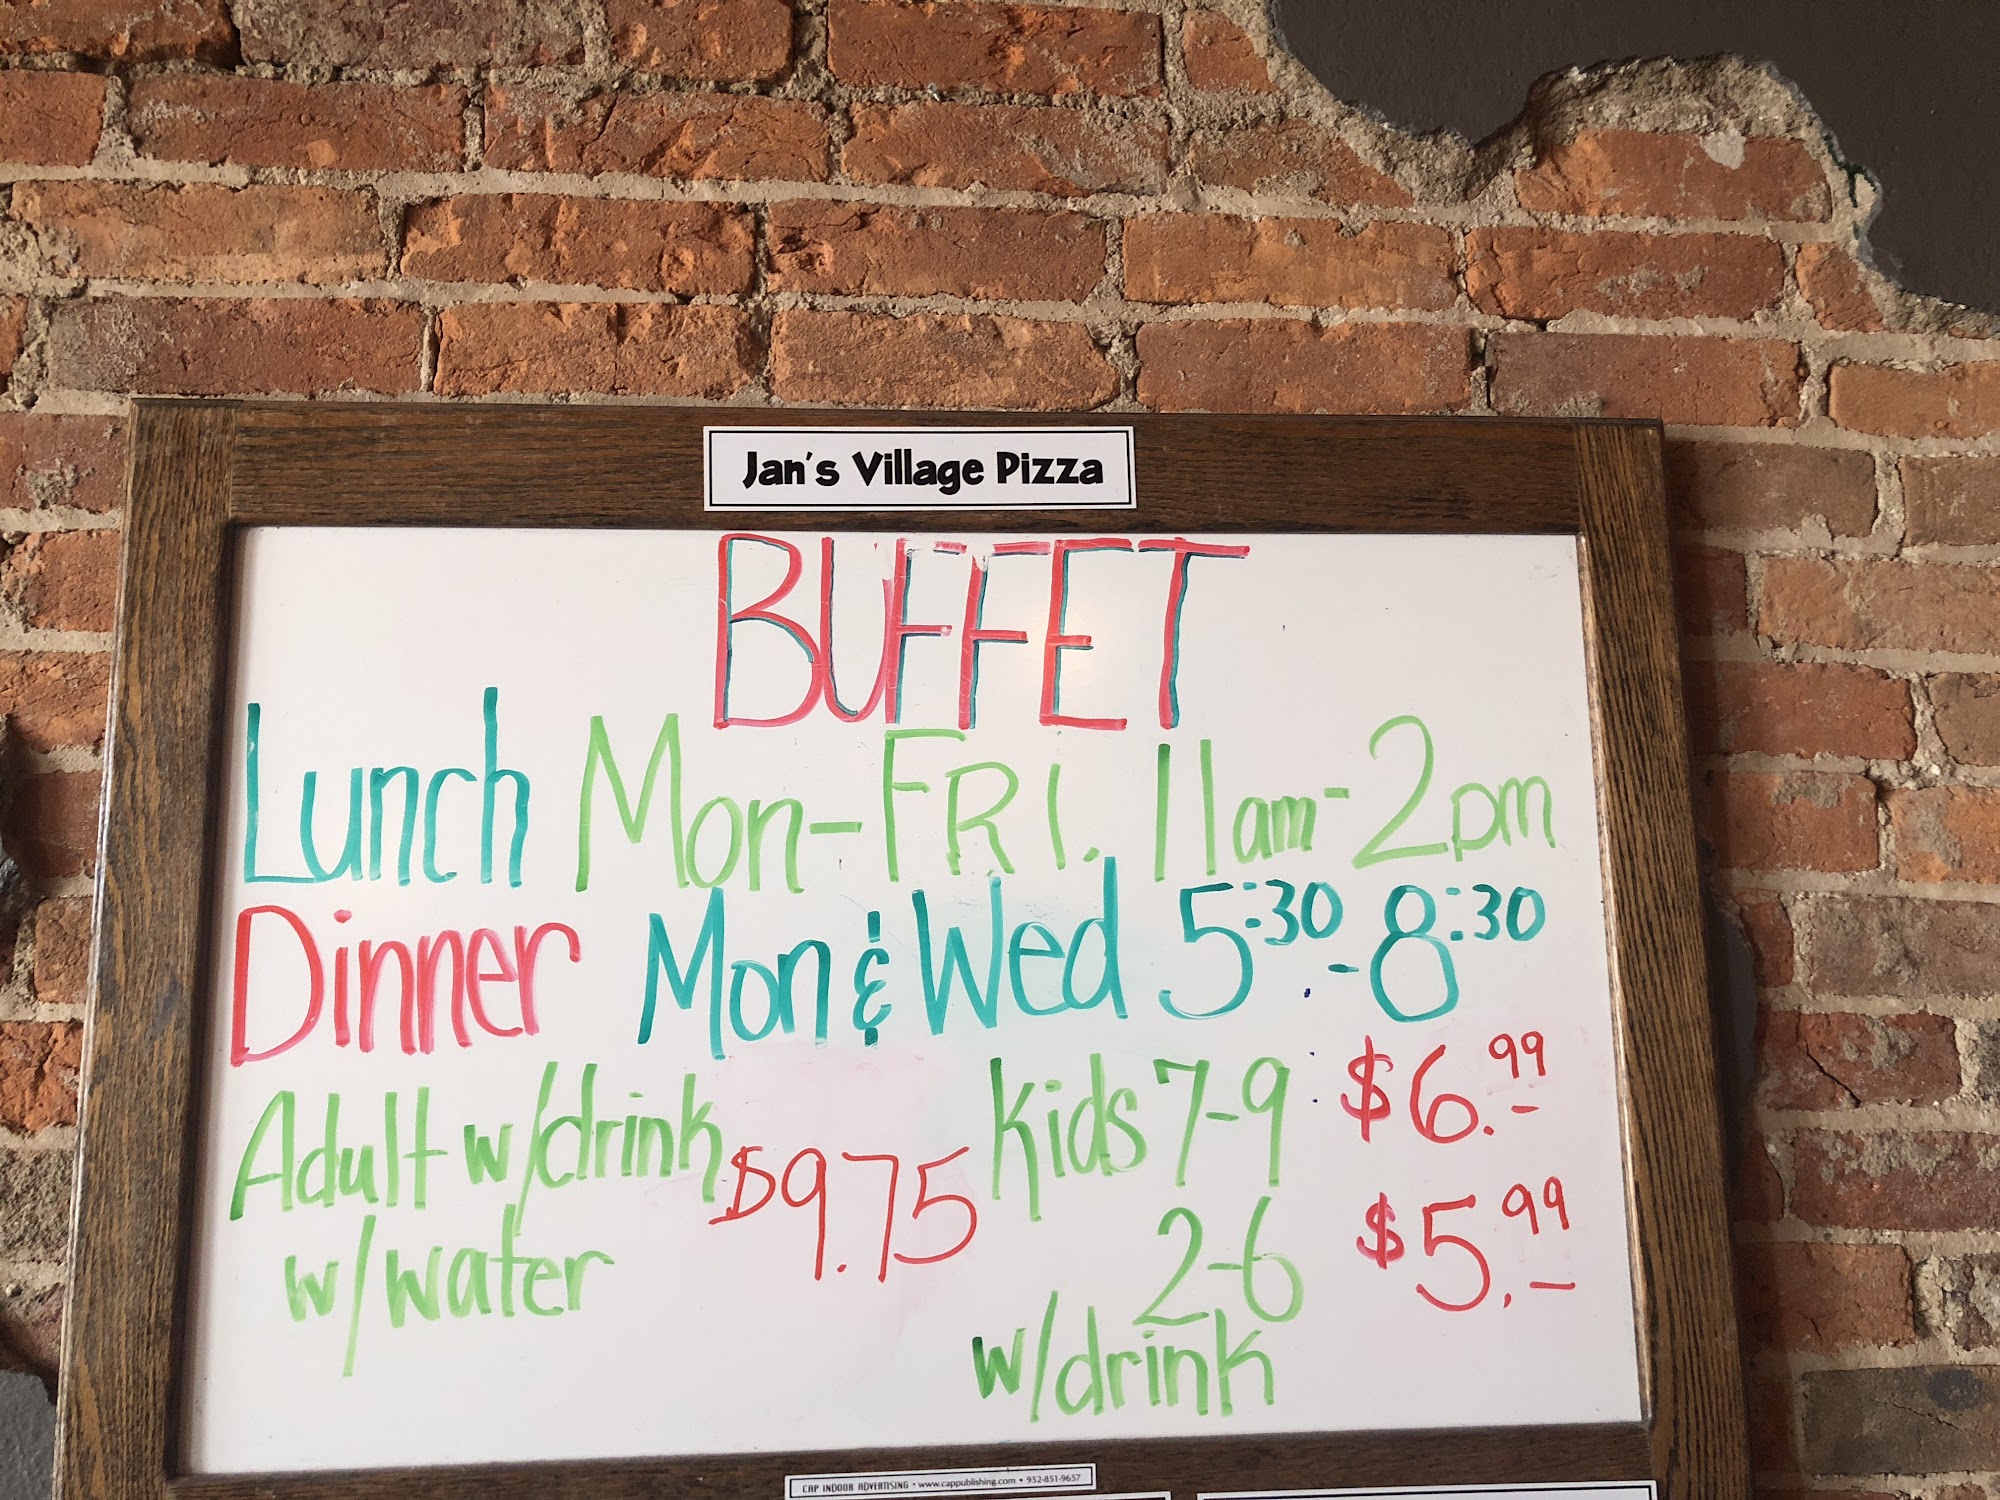 Jan's Village Pizza
BUFFET
Lunch Mon-FRI. 11am-2pm
Dinner Mon & Wed 5:30-8:30
Adult w/drink $9.75
w/water
Kids 7-9 $6.99
2-6 $5.99
w/drink
CAP INDOOR ADVERTISING • www.cappublishing.com • 952-851-9657